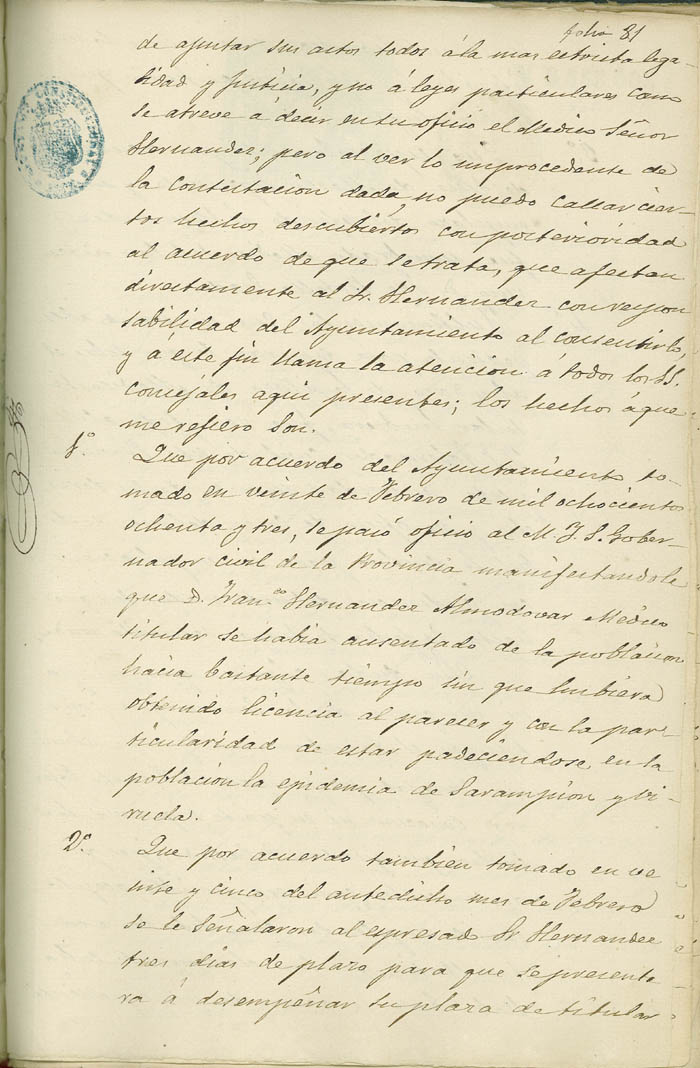 folio 81
de ajustar sus actos todos á la mas estricta lega-
lidad y Justicia, y no á leyes particulares como
se atreve á decir en su oficio el Medico Señor
Hernandez; pero al ver lo improcedente de
la contestacion dada, no puedo callar cier-
tos hechos descubiertos con posterioridad
al acuerdo de que se trata, que afectan
directamente al Sr. Hernandez con respon
sabilidad del Ayuntamiento al consentirlo,
y á este fin llama la atencion á todos los SS.
concejales aqui presentes; los hechos á que
me refiero son.
1.º Que por acuerdo del Ayuntamiento to-
mado en veinte de Febrero de mil ochocientos
ochenta y tres, se pasó oficio al M. Y. S. Gober-
nador civil de la Provincia manifestandole
que D. Fran.co Hernandez Almodovar Medico
titular se habia ausentado de la poblacion
hacia bastante tiempo sin que hubiera
obtenido licencia al parecer y con la par-
ticularidad de estar padeciendose, en la
poblacion la epidemia de Sarampion y Vi-
ruela.
2.º Que por acuerdo tambien tomado en ve
inte y cinco del antedicho mes de Febrero
se le señalaron al espresado Sr Hernandez
tres dias de plazo para que se presenta
ra á desempeñar su plaza de titular